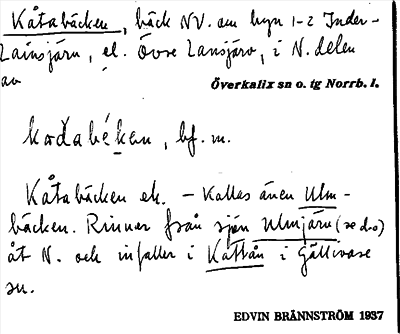 Kåtabäcken, bäck NV. om byn 1-2 Inder-
Lainsjärv, el. Övre Lansjärv, i N. delen
av Överkalix sn o. tg Norrb. l.
kåđabékan, bf. m.
Kåtabäcken ek. – Kallas även Ulm-
bäcken. Rinner från sjön Ulmjärv (se d.o)
åt N. och infaller i Kåttån i Gällivare
sn.
EDVIN BRÄNNSTRÖM 1937